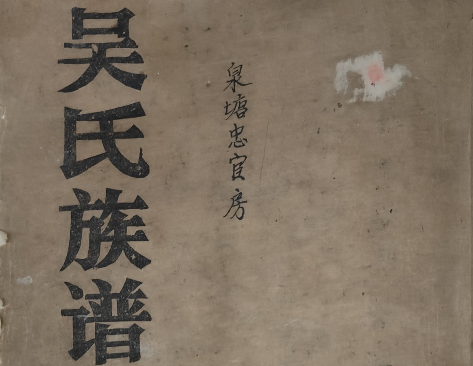 吴氏族谱
泉塘忠官房